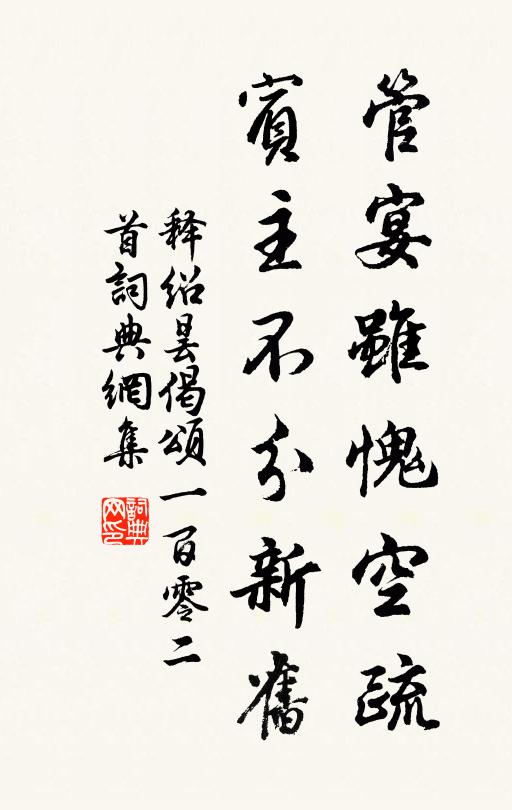 管宴雖愧空疏
賓主不分新舊
释绍昙偈頌一百零二
首詞典網集
詞典网印